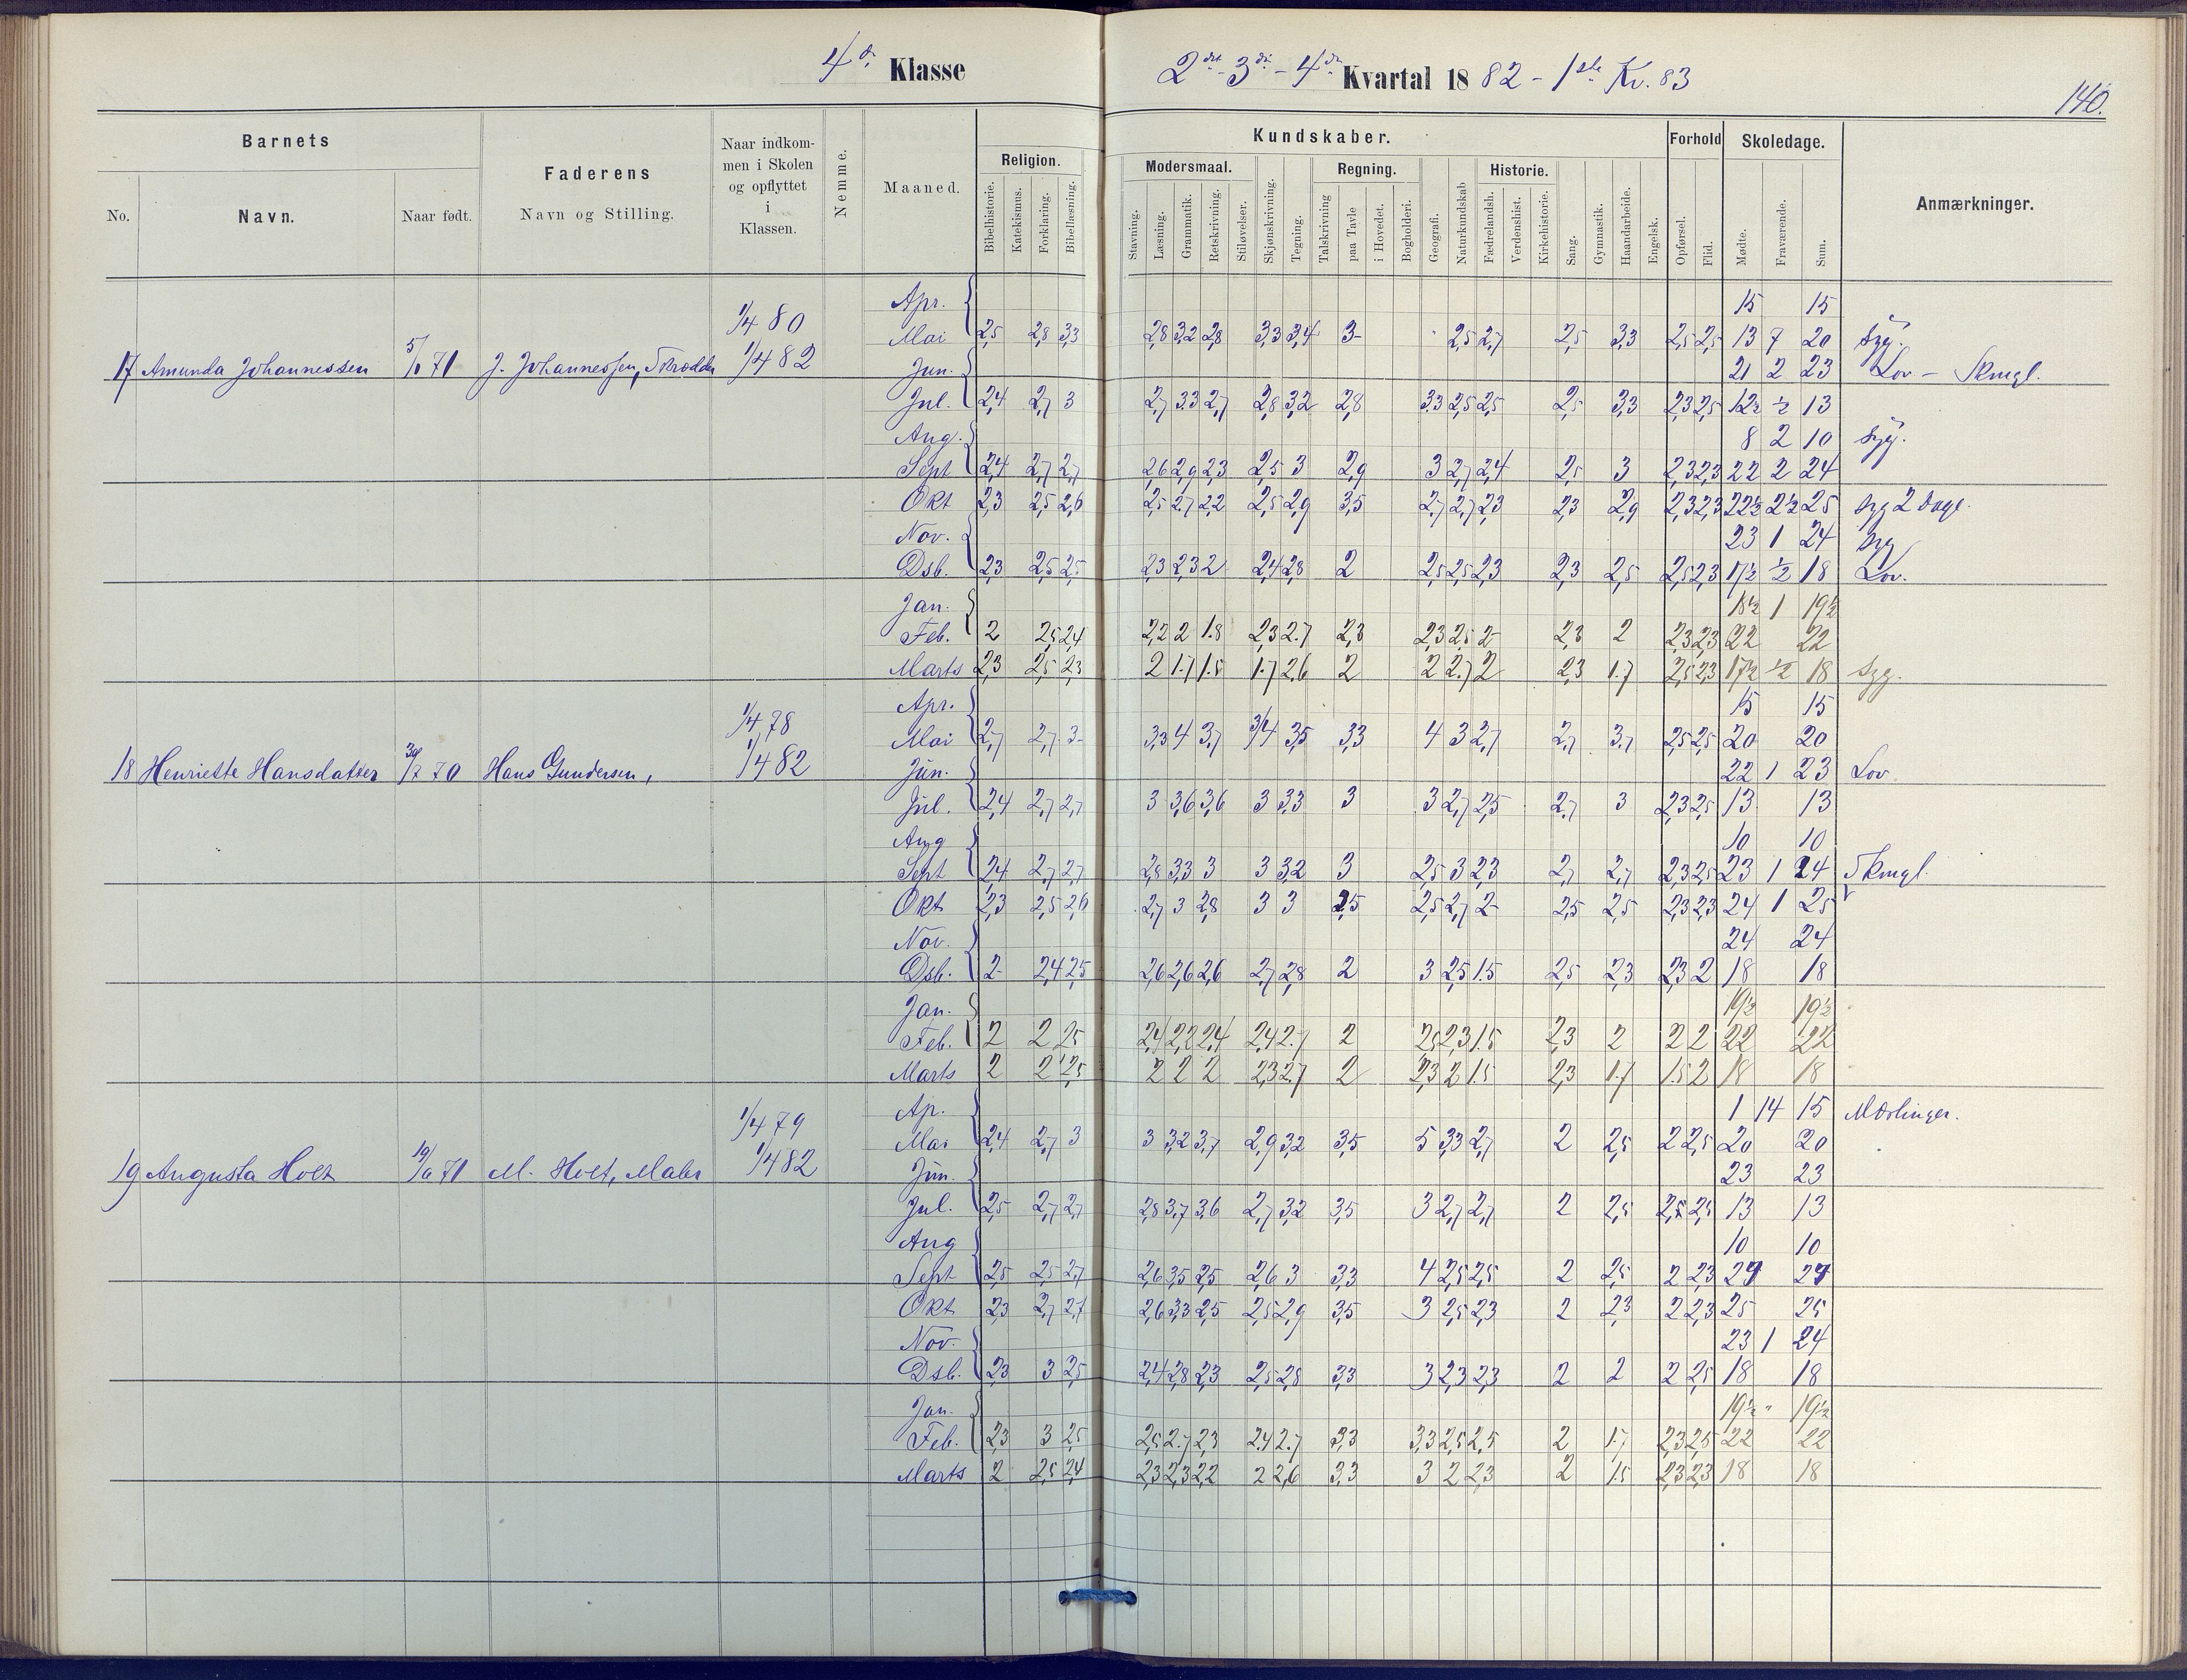 4de Klasse
2det 3die - 4de Kvartal 1882 - 1ste Kv. 83
140.
Barnets
No.
Navn.
Naar født.
Faderens
Navn og Stilling.
Naar indkom-
men i Skolen
og opflyttet
i
Klassen.
Nemme.
Maaned.
Kundskaber.
Religion.
Bibelhistorie.
Katekismus.
Forklaring.
Bibellæsning.
Modersmaal.
Stavning.
Læsning.
Grammatik.
Retskrivning.
Stiløvelser.
Skjønskrivning.
Tegning.
Regning.
Talskrivning
paa Tavle
i Hovedet.
Bogholderi.
Geografi.
Naturkundskab
Historie.
Fædrelandsh.
Verdenshist.
Kirkehistorie.
Sang.
Gymnastik.
Haandarbeide.
Engelsk.
Forhold
Opførsel.
Flid.
Skoledage.
Mødte.
Fraværende.
Sum.
Anmærkninger.
Apr. 15 15
1/4 80
Mai 2,5 2,8 3,3 2,8 3,2 2,8 3,3 3,4 3- 2,5 2,7 2,5 3,3 2,5 2,5 13 7 20 syg.
17 Amunda Johannessen 71 J. Johannessen, Skrædder 1/4 82 Jun. 21 2 23 Lov - Skmgl.
Jul. 2,4 2,7 3 2,7 3.3 2,7 2,8 3,2 2,8 3.3 2,5 2,5 2,5 3,3 2,3 2,5 12½ ½ 13
Aug. 8 2 10 syg.
Sept 2,4 2,7 2,7 2,6 2,9 2,3 2,5 3 2,9 3 2,7 2,4 2,5 3 2,3 2,3 22 2 24
Okt 2,3 2,5 2,6 2,5 2,7 2,2 2,5 2,9 3,5 2,7 2,7 2,3 2,3 2,9 2,3 2,3 22½ 2½ 25 syg 2 dage.
Nov. 23 1 24 syg
Dsb. 2,3 2,5 2,5 2,3 2,3 2 2,4 2,8 2 2,5 2,5 2,3 2,3 2,5 2,5 2,3 17½ ½ 18 Lov.
Jan. 18½ 1 19½
Feb. 2 2,5 2,4 2,2 2 1.8 2,3 2.7 2,3 2,3 2,5 2- 2,3 2 2,3 2,3 22 22
Marts 2,3 2,5 2,3 2 1.7 1.5 1.7 2,6 2 2 2.7 2 2,3 1.7 2,5 2,3 17½ ½ 18 syg.
Apr. 15 15
1/4 78
Mai 2,7 2,7 3- 3,3 4 3,7 3/4 3,5 3,3 4 3 2,7 2,7 3.7 2,5 2,5 20 20
18 Henriette Hansdatter 30/7 70 Hans Gundersen, 1/4 82 Jun. 22 1 23 Lov
Jul. 2,4 2,7 2,7 3 3,6 3,6 3 3,3 3 3 2,7 2,5 2,7 3 2,3 2,5 13 13
Aug 10 10
Sept 2,4 2,7 2,7 2,8 3,3 3 3 3,2 3 2,5 3 2,3 2,7 2,7 2,3 2,5 23 1 24 Skmgl.
Okt 2,3 2,5 2,6 2,7 3 2,8 3 3 2,5 2,5 2,7 2- 2,5 2,5 2,3 2,3 24 1 25
Nov. 24 24
Dsb. 2- 2,4 2,5 2,6 2,6 2,6 2,7 2,8 2 3 2,5 1.5 2,5 2,3 2,3 2 18 18
Jan. 19½ 19½
Feb. 2 2 2,5 2,4 2,2 2,4 2,4 2.7 2 2,5 2,3 1.5 2,3 2 2 2 22 22
Marts 2 2 2,5 2 2 2 2,3 2.7 2 2,3 2 1.5 2,3 1.7 1.5 2 18 18
Ap. 1 14 15 Mæslinger.
1/4 79
Mai 2,4 2,7 3 3 3,2 3,7 2,9 3,2 3,5 5 3,3 2,7 2 2,5 2 2,5 20 20
19 Augusta Holt 71 M. Holt, Maler 1/4 82 Jun. 23 23
Jul. 2,5 2,7 2,7 2,8 3,7 3,6 2,7 3,2 3,5 3 2,7 2,7 2 2,5 2,5 13 13
Aug 10 10
Sept 2,5 2,5 2,7 2,6 3,5 2,5 2,6 3 3,3 4 2,5 2,5 2 2,5 2 2,3 24 24
Okt 2,3 2,7 2,7 2,6 3,3 2,5 2,5 2,9 3,5 3 2,5 2,3 2 2,3 2 2,3 25 25
Nov. 23 1 24
Dsb. 2,3 3 2,5 2,4 2,8 2,3 2,5 2,8 3,3 3 2,3 2,3 2 2 2 2,5 18 18
Jan. 19½ " 19½
Feb. 2,3 3 2,5 2,5 2.7 2,3 2.4 2.7 3,3 3,3 2,5 2,5 2 1.7 2,3 2,5 22 22
Marts 2 2,5 2,4 2,3 2,3 2,2 2 2,6 3,3 3 2 2,3 2 1.5 2,3 2,3 18 18